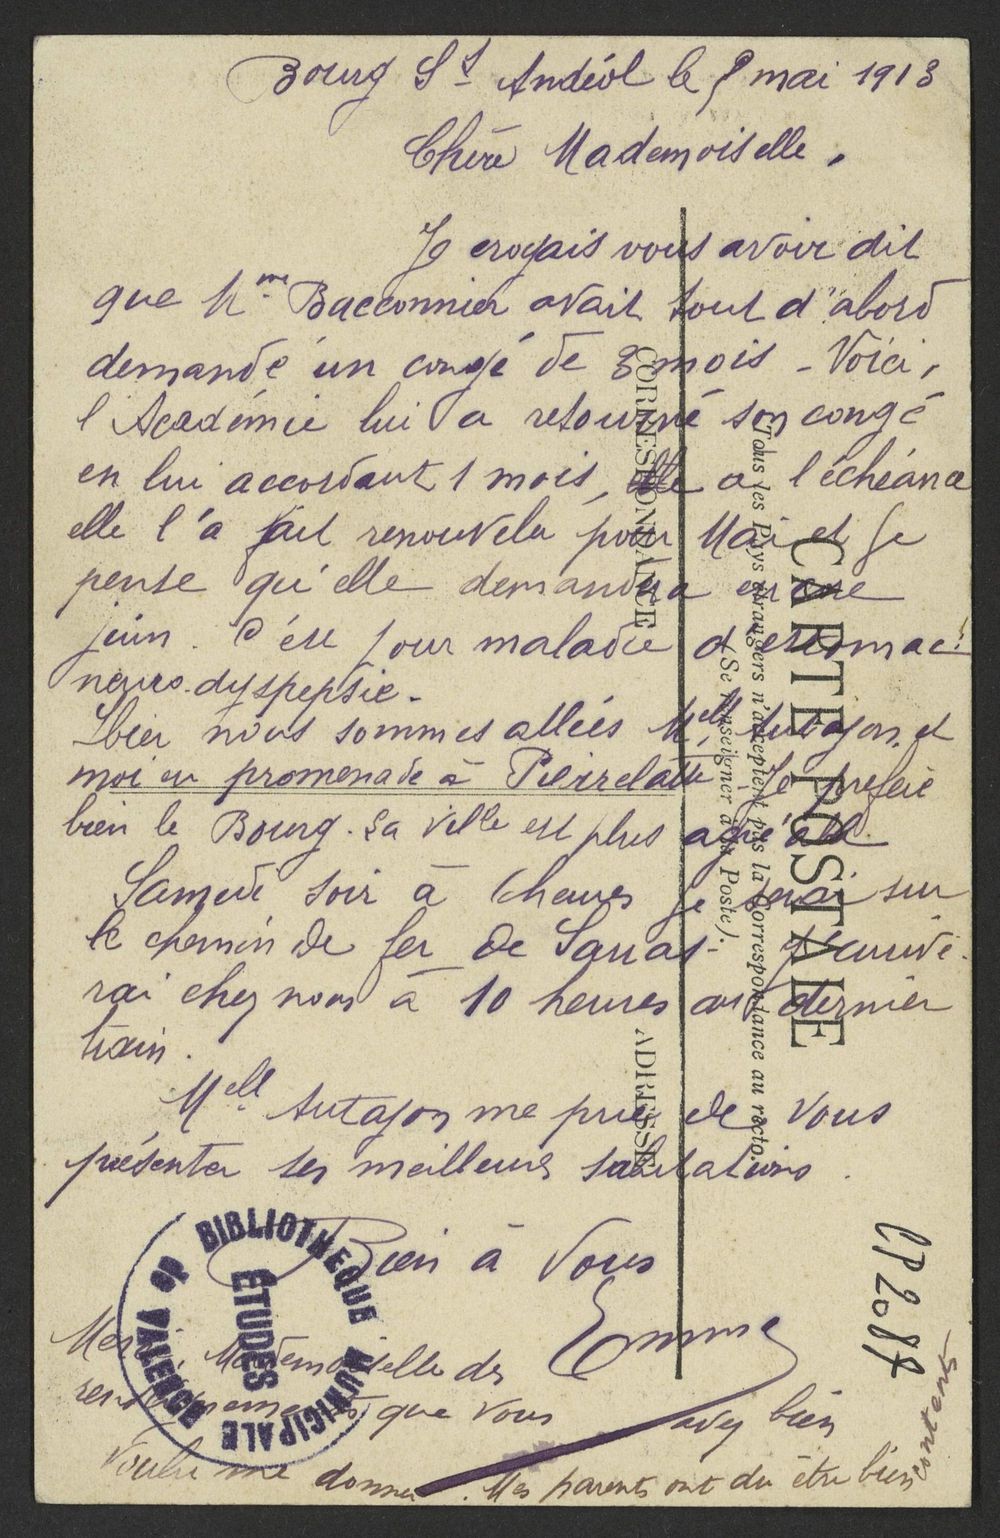 Bourg St Andéol le 9 mai 1913
Chère Mademoiselle,
Je croyais vous avoir dit
que Mme Bacconnier avait tout d'abord
demandé un congé de 3 mois - Voici,
l'Académie lui a retourné son congé
en lui accordant 1 mois, a l'échéance
elle l'a fait renouveler pour Mai et je
pense qu'elle demandera encore
juin. C'est pour maladie d'estomac:
neuro-dyspepsie.
Hier nous sommes allées Melle Autajon et
moi en promenade à Pierrelatte. Je préfère
bien le Bourg. La ville est plus agréable
Samedi soir à 6 heures je serai sur
le chemin de fer de Sarras- J'arrive-
rai chez nous à 10 heures au dernier
train.
Melle Autajon me prie de vous
présenter ses meilleures salutations.
Bien à Vous
Emma
Merci Mademoiselle des
renseignements que vous avez bien
voulu me donner. Mes parents ont du être bien
contents
CARTE POSTALE
Tous les Pays étrangers n'acceptent pas la Correspondance au recto.
(Se renseigner à la Poste).
CORRESPONDANCE
ADRESSE
BIBLIOTHEQUE MUNICIPALE
de VALENCE
ÉTUDES
CP 2087